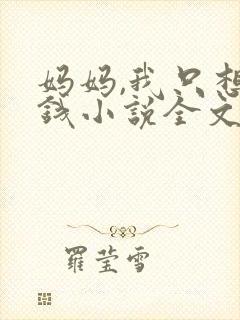 妈妈,我只想
钱小说全文
羅莹雪